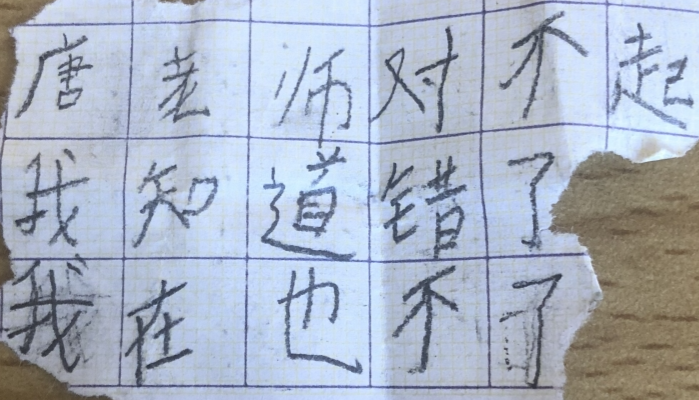 唐老师对不起
我知道错了
我在也不了